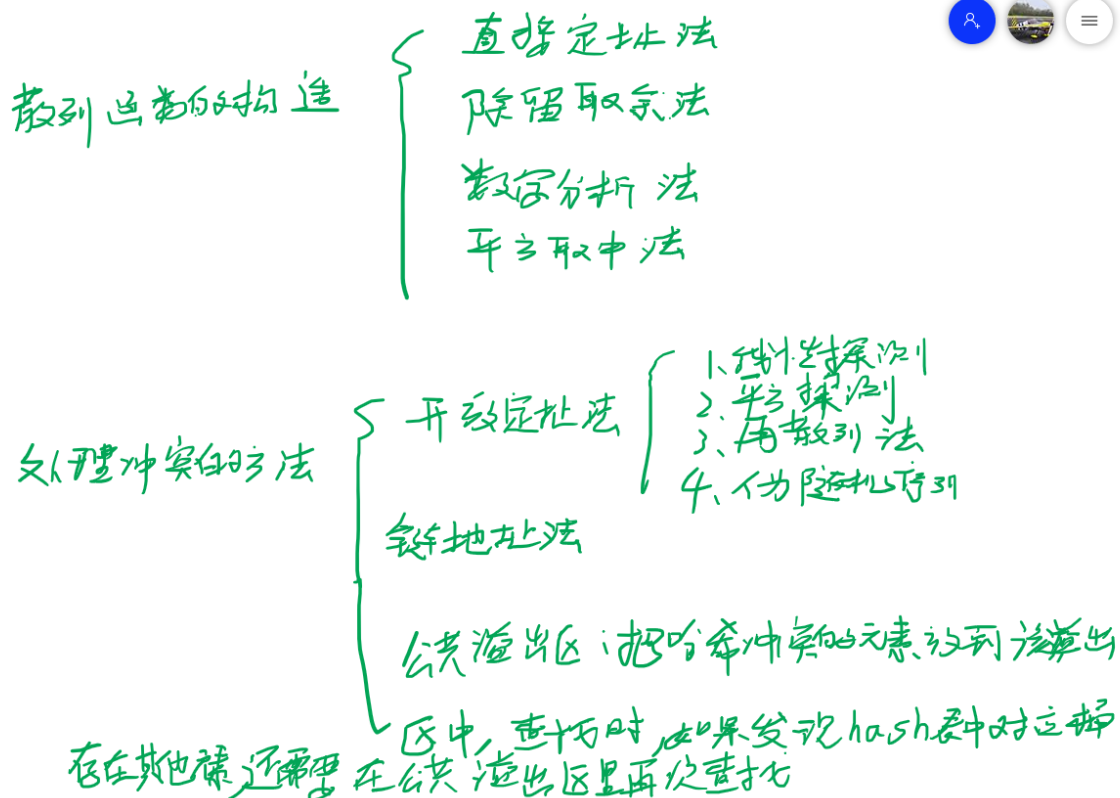 散列函数的构造
直接定址法
除留取余法
数字分析法
平方取中法
处理冲突的方法
开放定址法
1、线性探测
2、平方探测
3、再散列法
4、伪随机序列
链地址法
公共溢出区:把哈希冲突的元素放到该溢出
区中,查找时,如果发现hash表中对应槽
存在其他元素,还需要在公共溢出区里再次查找